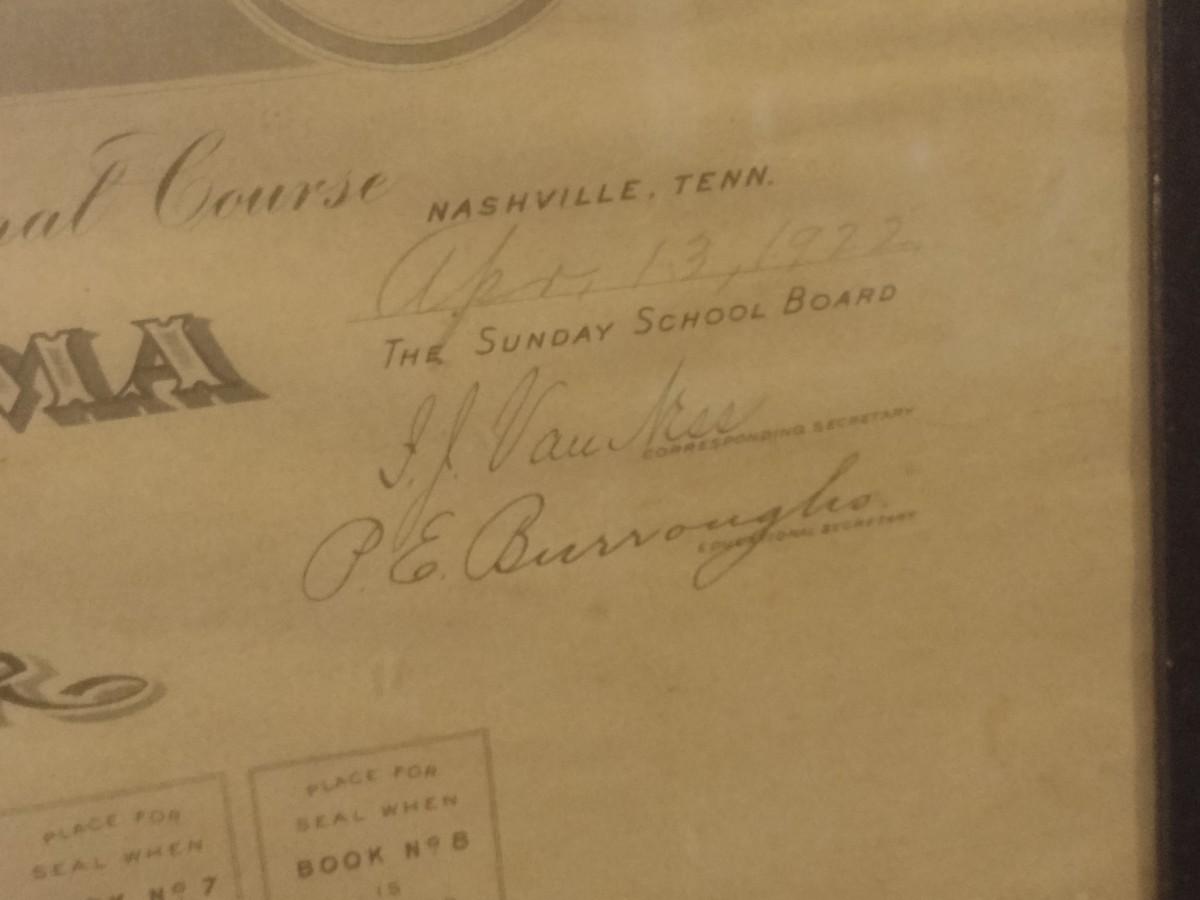 Course
NASHVILLE, TENN.
Apr. 13, 1922
THE SUNDAY SCHOOL BOARD
I. J. Van Ness
CORRESPONDING SECRETARY
P. E. Burroughs.
EDUCATIONAL SECRETARY
PLACE FOR
SEAL WHEN
Nº 7
PLACE FOR
SEAL WHEN
BOOK Nº 8
IS